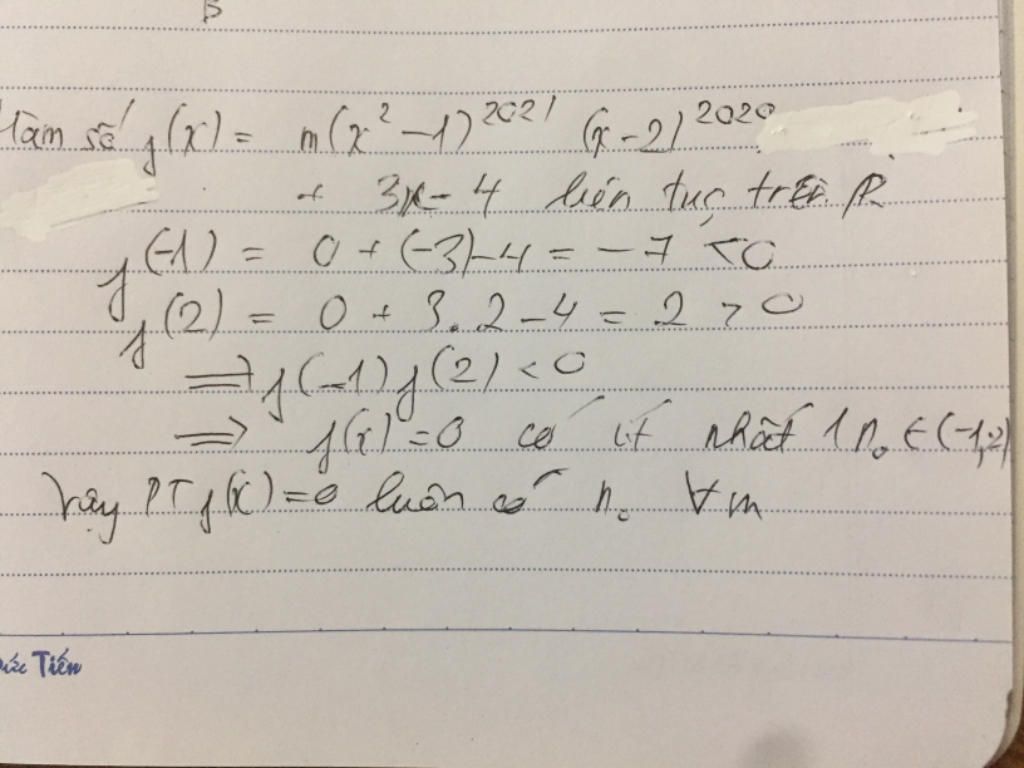 B
Hàm số f(x) = m(x² – 1)²⁰²¹ (x – 2)²⁰²⁰
+ 3x – 4 liên tục trên R
f(-1) = 0 + (-3) – 4 = – 7 < 0
f(2) = 0 + 3.2 – 4 = 2 > 0
⟹ f(-1) f(2) < 0
⟹ f(x) = 0 có ít nhất 1 n₀ ∈ (-1; 2)
Vậy PT f(x) = 0 luôn có n₀ ∀ m
Đức Tiến